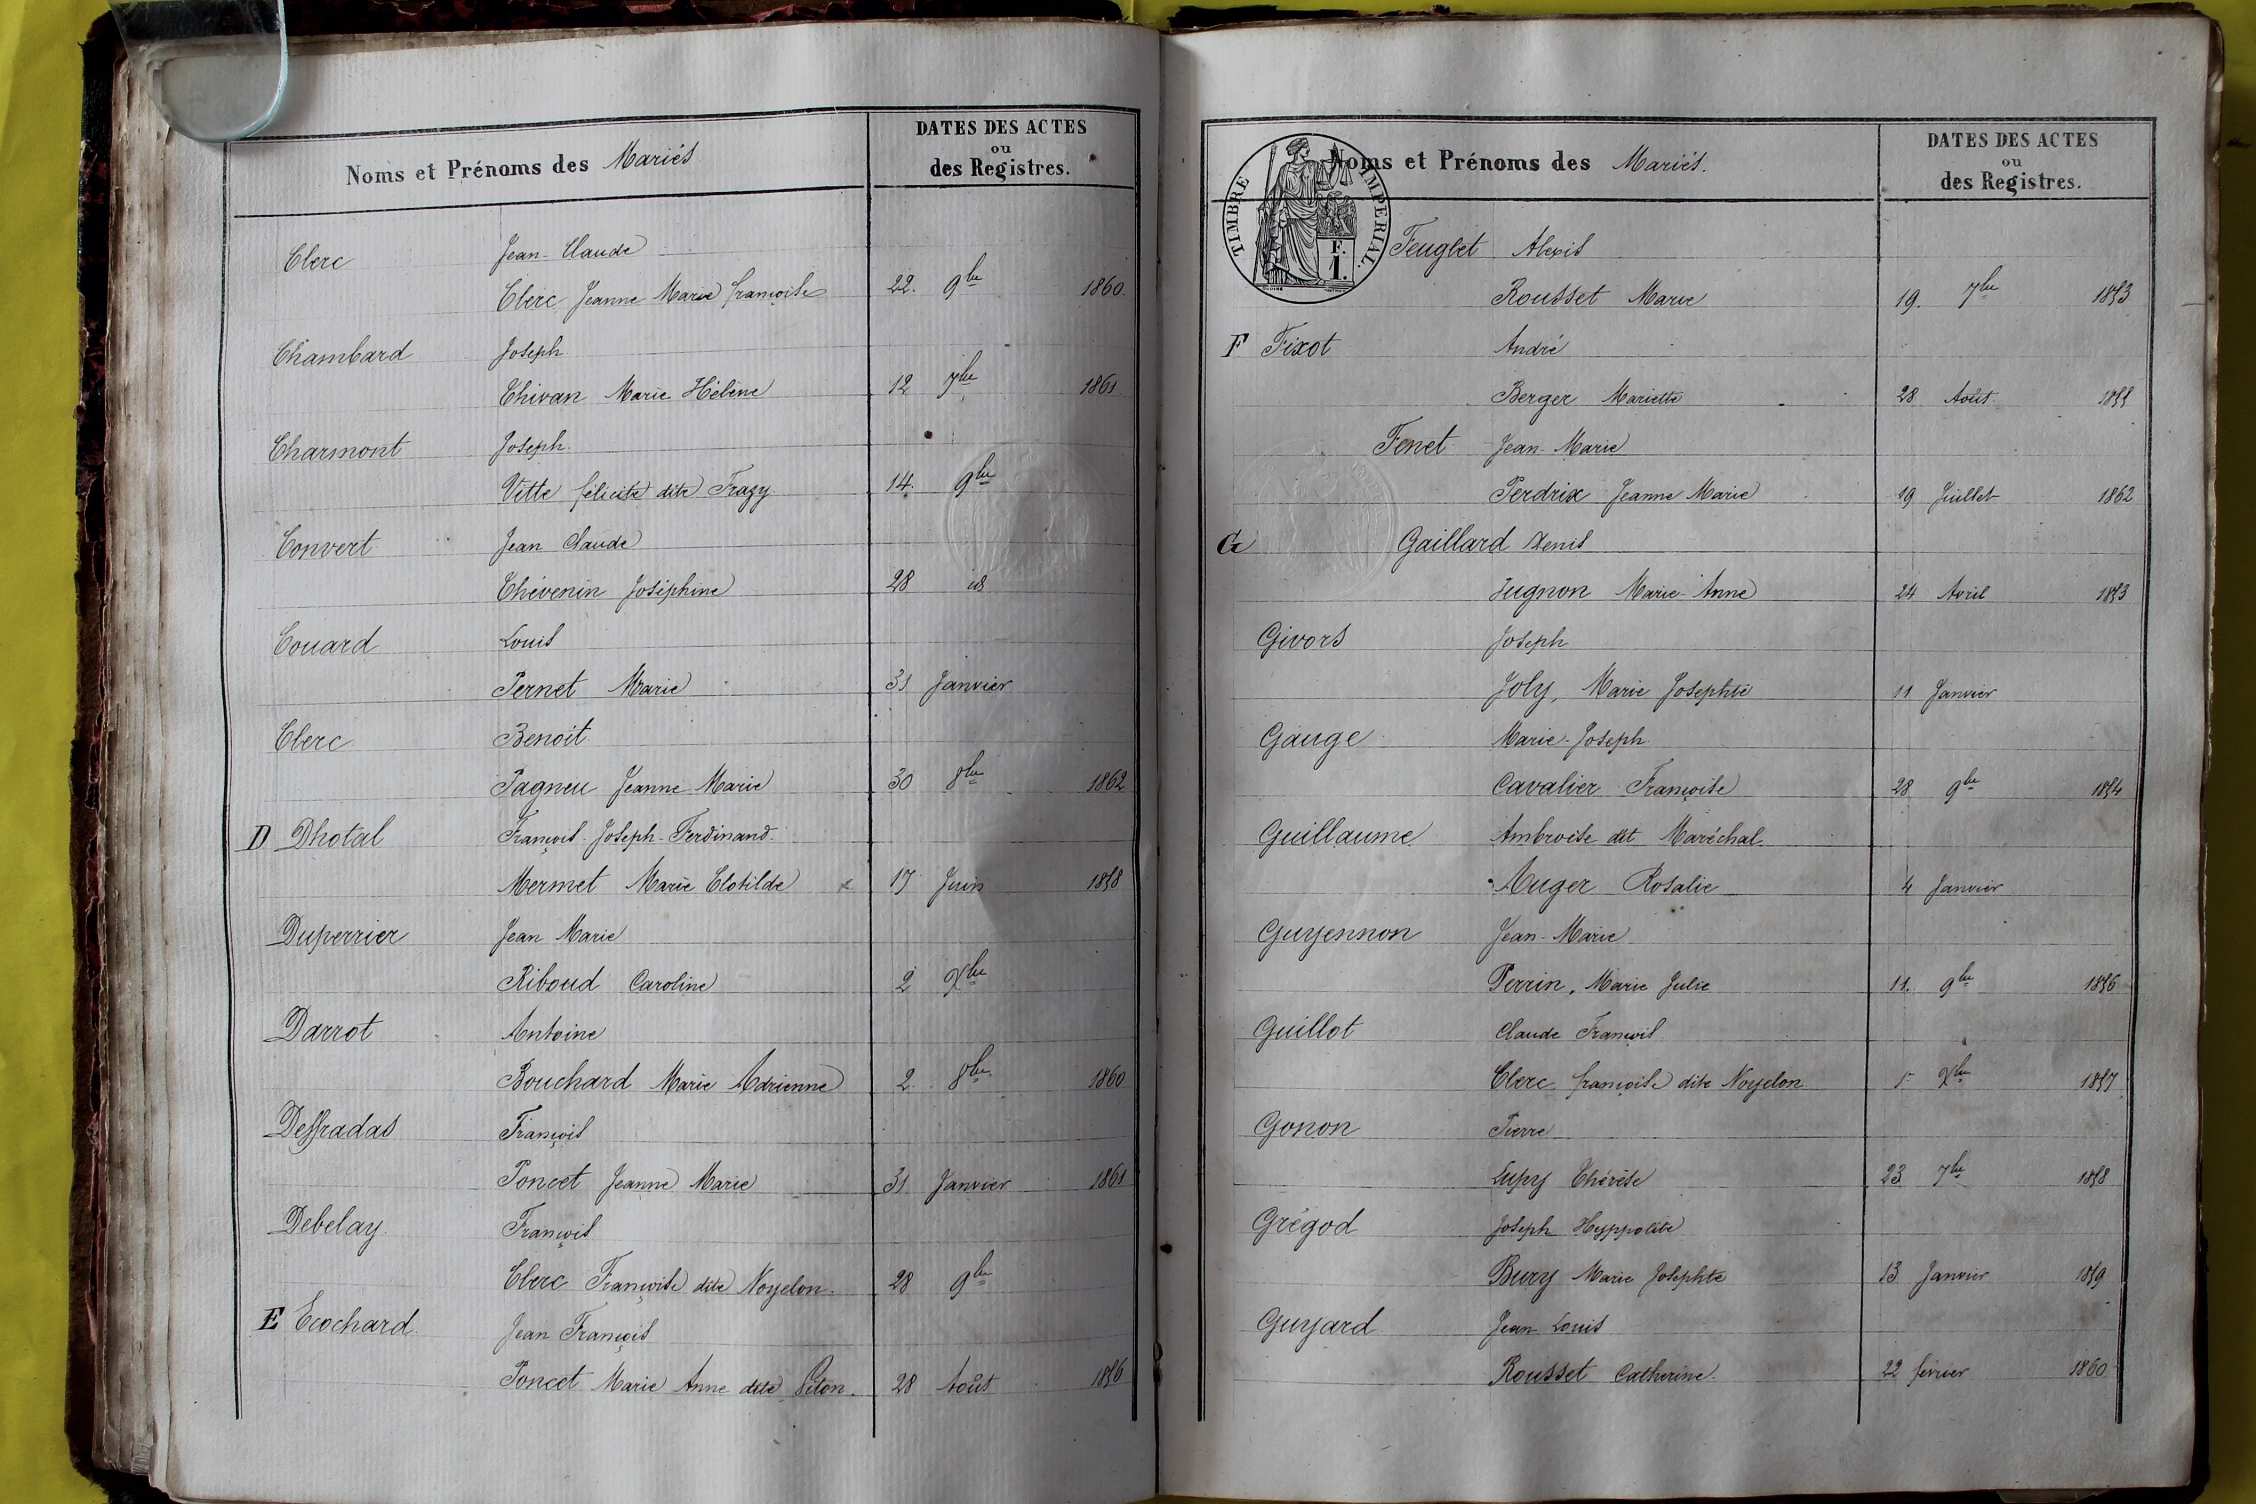 Noms et Prénoms des Mariés
DATES DES ACTES
ou
des Registres.
Clerc Jean-Claude
Clerc Jeanne Marie françoise 22. 9bre 1860.
Chambard Joseph
Chivan Marie Hélène 12 7bre 1861
Charmont Joseph.
Vitte félicité dite Frazy 14. 9bre
Convert Jean Claude
Chévenin Joséphine 28 id
Couard Louis
Pernet Marie 31 Janvier
Clerc Benoit
Pagneu Jeanne Marie 30 8bre 1862
D Dhotal François-Joseph-Ferdinand.
Mermet Marie Clotilde x 17 Juin 1858
Duperrier Jean Marie
Riboud Caroline 2 Xbre
Darrot Antoine
Bouchard Marie Adrienne 2. 8bre 1860
Deffradas François
Poncet Jeanne Marie 31 Janvier 1861
Debelay François
Clerc Françoise dite Noyelon. 28 9bre
E Ecochard Jean François
Poncet Marie Anne dite Piton. 28 Août 1856
TIMBRE IMPERIAL.
F.
1.
Noms et Prénoms des Mariés.
DATES DES ACTES
ou
des Registres.
Feuglet Alexis
Rousset Marie 19. 7bre 1853
F Fixot André
Berger Mariette 28 Août 1855
Fenet Jean-Marie
Perdrix Jeanne Marie 19 Juillet 1862
G Gaillard Denis
Jugnon Marie-Anne 24 Avril 1853
Givors Joseph
Joly, Marie Josephte 11 Janvier
Gauge Marie-Joseph
Cavalier Françoise 28 9bre 1854
Guillaume Ambroise dit Maréchal.
Auger Rosalie 4 Janvier
Guyennon Jean-Marie
Perrin, Marie Julie 11. 9bre 1856
Guillot Claude François
Clerc françoise dite Noyelon 5 Xbre 1857
Gonon Pierre
Lupy Thérèse 23 7bre 1858
Grégod Joseph Hyppolite
Bury Marie Josephte 13 Janvier 1859
Guyard Jean Louis
Rousset Catherine. 22 février 1860